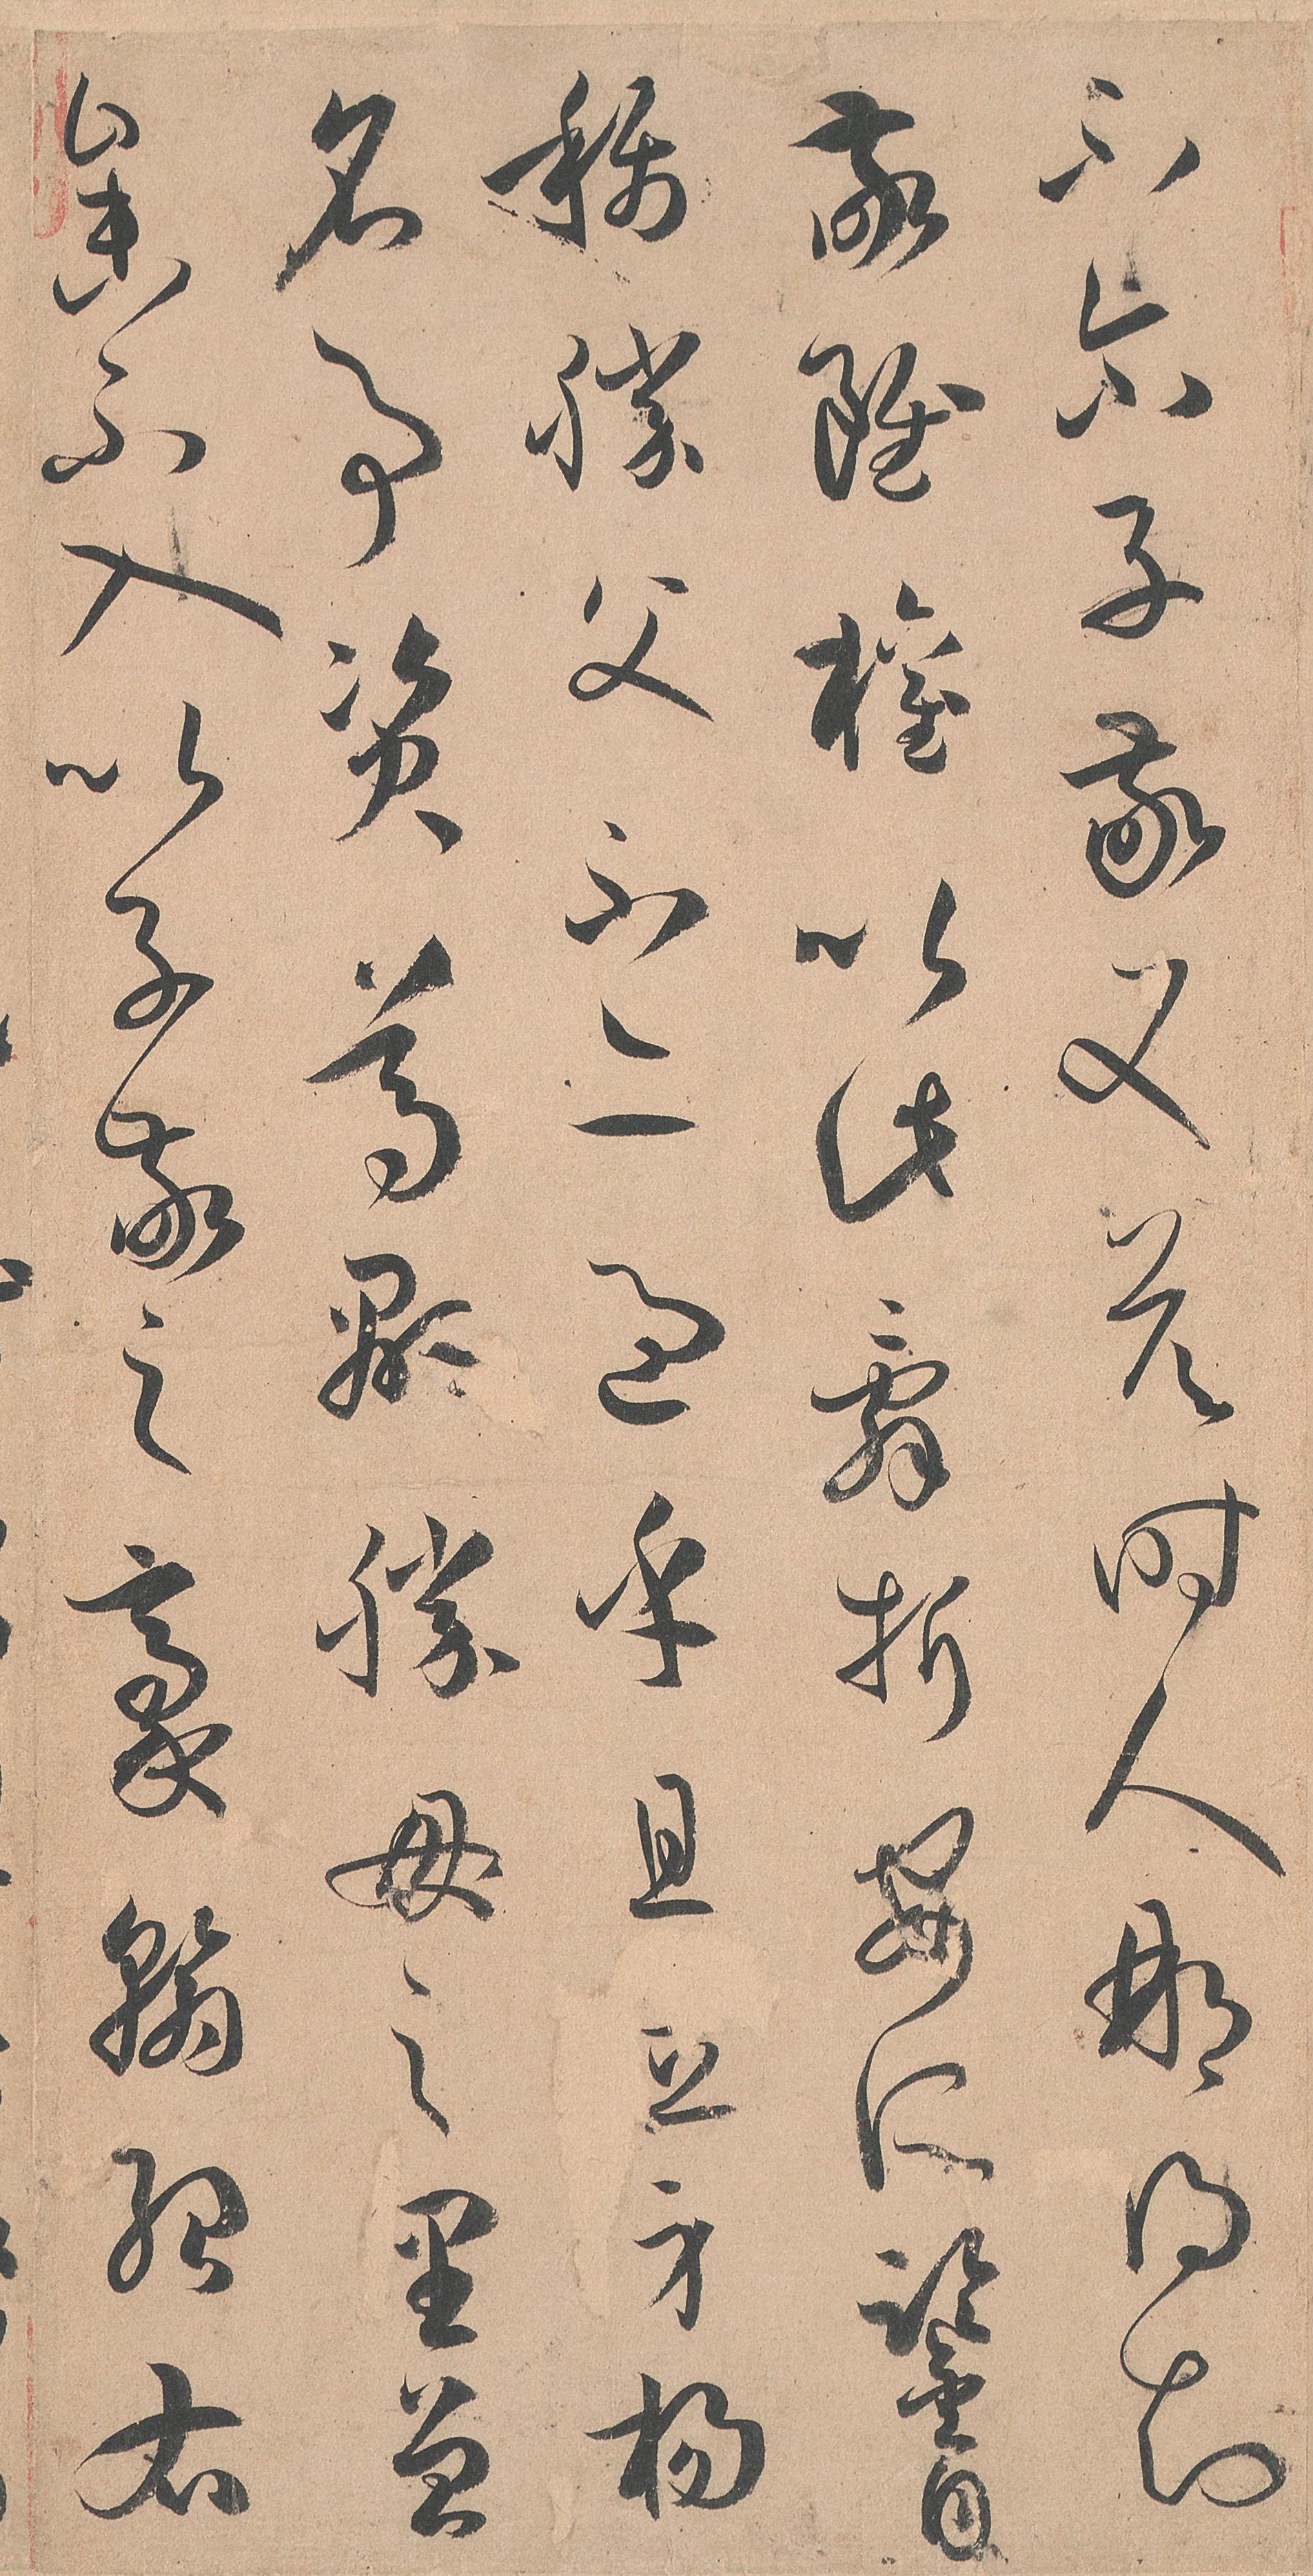 不尔子敬又答時人那得知
敬雖權以此辭折安所鑒自
稱勝父不亦過乎且立身揚
名事資尊顯勝母之里曾
參不入以子敬之豪翰紹右